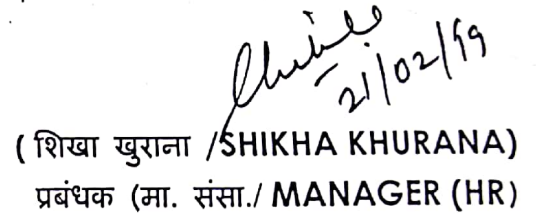 21/02/19
( शिखा खुराना /SHIKHA KHURANA)
प्रबंधक (मा. संसा./ MANAGER (HR)